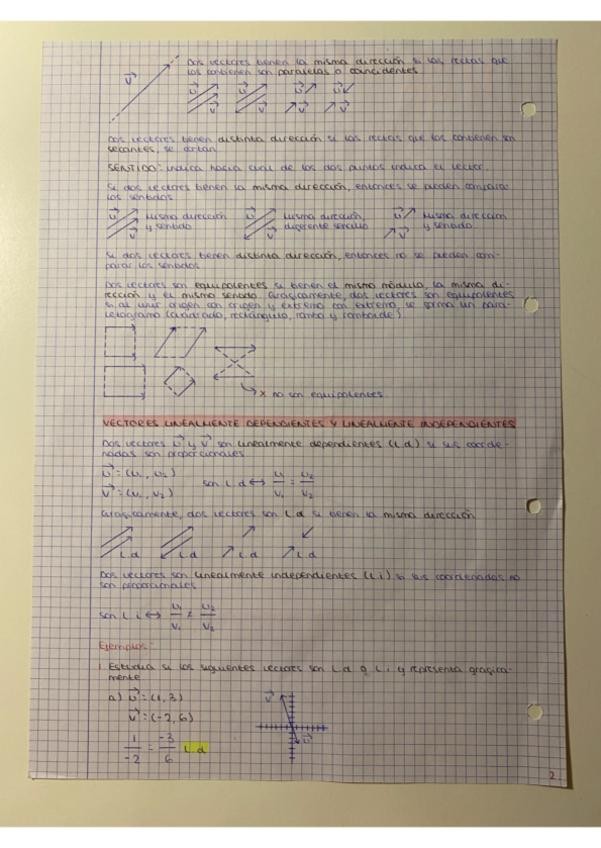 Dos vectores tienen la misma dirección si las rectas que
los contienen son paralelas o coincidentes
v
u v u v u v u v
Dos vectores tienen distinta dirección si las rectas que los contienen son
secantes, se cortan
SENTIDO: indica hacia cual de los dos puntos indica el vector.
Si dos vectores tienen la misma dirección, entonces se pueden comparar
los sentidos
u v Misma dirección y sentido
u v Misma dirección, diferente sentido
u v Misma dirección y sentido
Si dos vectores tienen distinta dirección, entonces no se pueden com-
parar los sentidos
Dos vectores son equipolentes si tienen el mismo módulo, la misma di-
rección y el mismo sentido. Gráficamente, dos vectores son equipolentes
si al unir origen con origen y extremo con extremo, se forma un para-
lelogramo (cuadrado, rectángulo, rombo y romboide)
x no son equipolentes
VECTORES LINEALMENTE DEPENDIENTES Y LINEALMENTE INDEPENDIENTES
Dos vectores u y v son linealmente dependientes (L d) si sus coorde-
nadas son proporcionales
u = (u1, u2)
v = (v1, v2)
son L d ↔ u1/v1 = u2/v2
Gráficamente, dos vectores son L d si tienen la misma dirección
L d L d L d L d
Dos vectores son linealmente independientes (L i) si sus coordenadas no
son proporcionales
son L i ↔ u1/v1 ≠ u2/v2
Ejemplos:
1. Estudia si los siguientes vectores son L d o L i y representa gráfica-
mente
a) u = (1, 3)
v = (-2, 6)
1/-2 = -3/6 L d
v
u
2